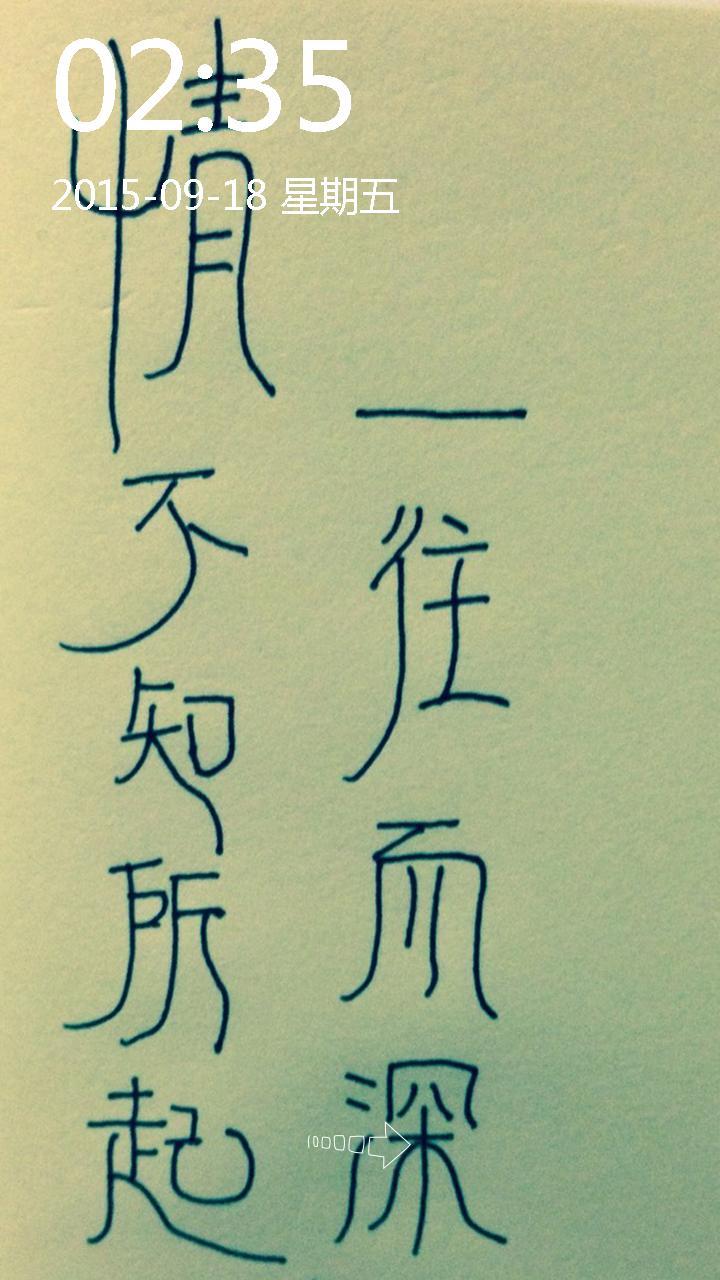 02:35
2015-09-18 星期五
情不知所起
一往而深